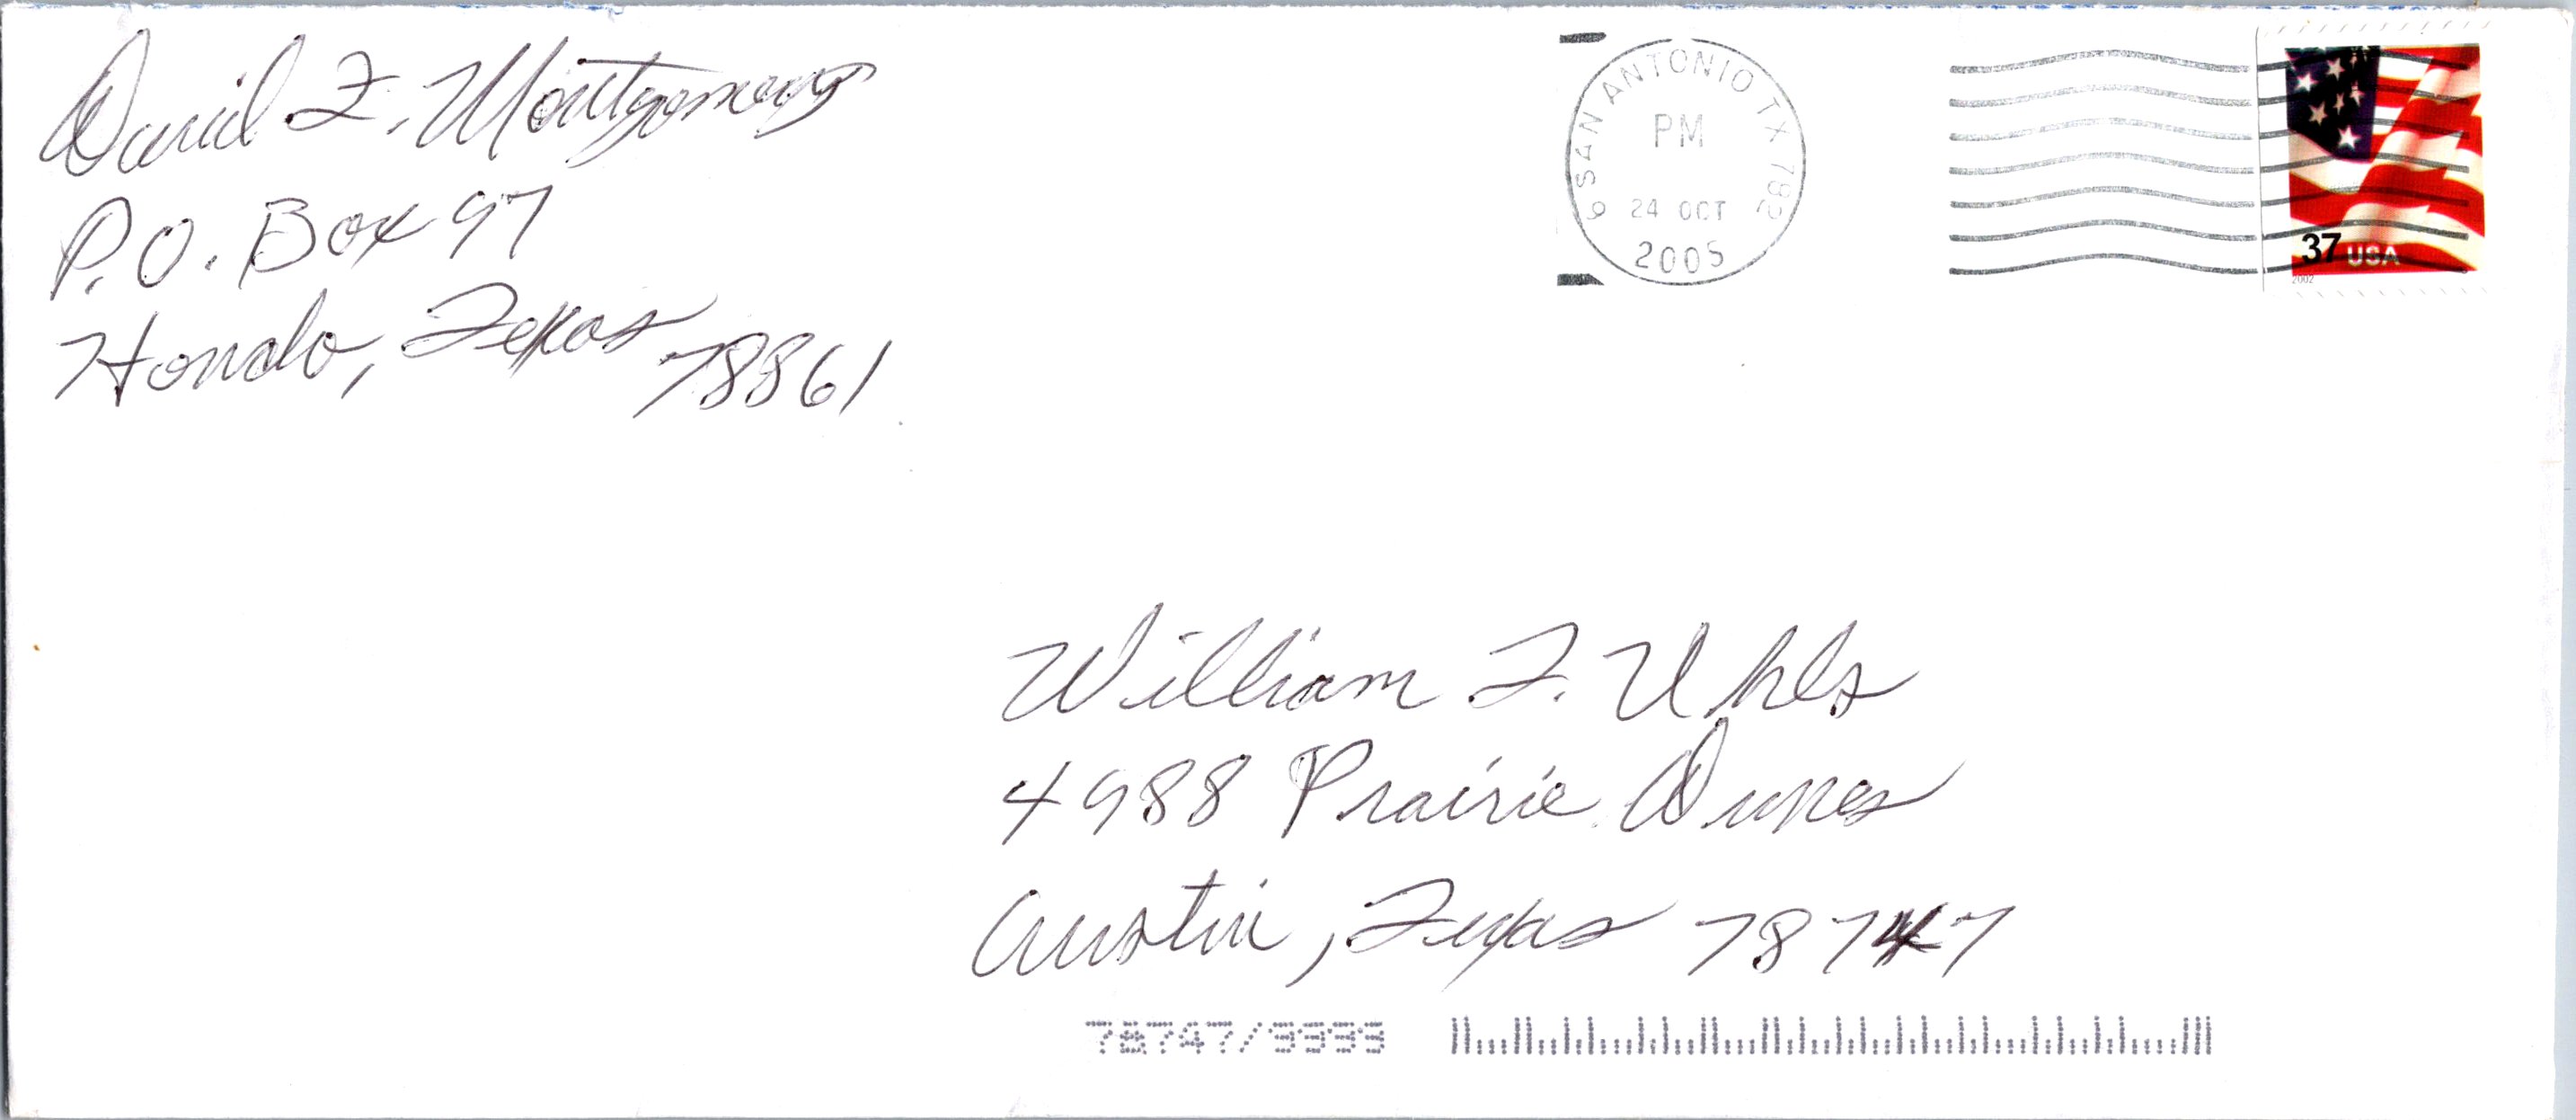 David F. Montgomery
P.O. Box 97
Hondo, Texas 78861
SAN ANTONIO TX 782
PM
24 OCT
2005
37 USA
2002
William F. Uhls
4988 Prairie Dunes
Austin, Texas 78747
78747/9999